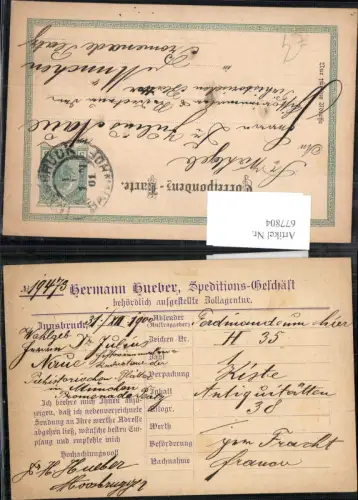 Correspondenz-Karte.
Sr Wohlgeb.
An Herrn Dr Julius Naue
in München
Promenade Platz
Nur für die Adresse
INNSBRUCK
01
Artikel Nr.
677804
№ 19473 Hermann Hueber, Speditions-Geschäft
behördlich aufgestellte Zollagentur.
Innsbruck, 31/XII 1900
Wohlgeb
Herrn Dr Julius
Naue
Prähistorischen Blätter
in München
Promenade Platz
Ich beehre mich Ihnen anzu-
zeigen, daß ich nebenverzeichnete
Sendung an Ihre werthe Adresse
abgehen ließ, wünsche besten Em-
pfang und empfehle mich
Hochachtungsvoll
H. Hueber
Absender (Auftraggeber) Ferdinandeum hier
Zeichen-Nr. H 35
Zahl
Verpackung Kiste
Inhalt Antiquitäten
Kilogr. 38
Werth
Beförderung gew Fracht
Nachnahme franco